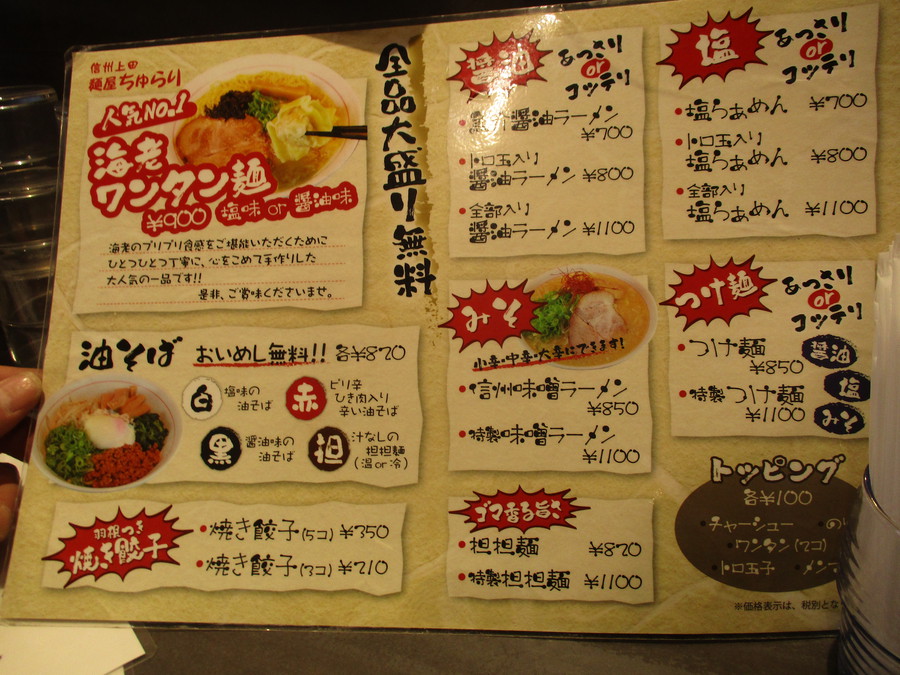 信州上田
麺屋ちゅらり
人気No.1
海老
ワンタン麺
¥900 塩味 or 醤油味
海老のプリプリ食感をご堪能いただくために
ひとつひとつ丁寧に、心をこめて手作りした
大人気の一品です!!
是非、ご賞味くださいませ。
全品大盛り無料
油そば おいめし無料!! 各¥870
白 塩味の
油そば
赤 ピリ辛
ひき肉入り
辛い油そば
黒 醤油味の
油そば
担 汁なしの
担担麺
(温or冷)
羽根つき
焼き餃子
・焼き餃子(5コ) ¥350
・焼き餃子(3コ) ¥210
醤油
あっさり
or
コッテリ
醤油ラーメン
¥700
・トロ玉入り
醤油ラーメン ¥800
・全部入り
醤油ラーメン ¥1100
みそ
小辛・中辛・大辛にできます!
・信州味噌ラーメン
¥850
・特製味噌ラーメン
¥1100
ゴマ香る旨さ
・担担麺 ¥870
・特製担担麺 ¥1100
塩
あっさり
or
コッテリ
・塩らぁめん ¥700
・トロ玉入り
塩らぁめん ¥800
・全部入り
塩らぁめん ¥1100
つけ麺
あっさり
or
コッテリ
・つけ麺
¥850
・特製つけ麺
¥1100
醤油
塩
みそ
トッピング
各¥100
・チャーシュー ・の
・ワンタン(2コ)
・トロ玉子 ・メンマ
※価格表示は、税別とな